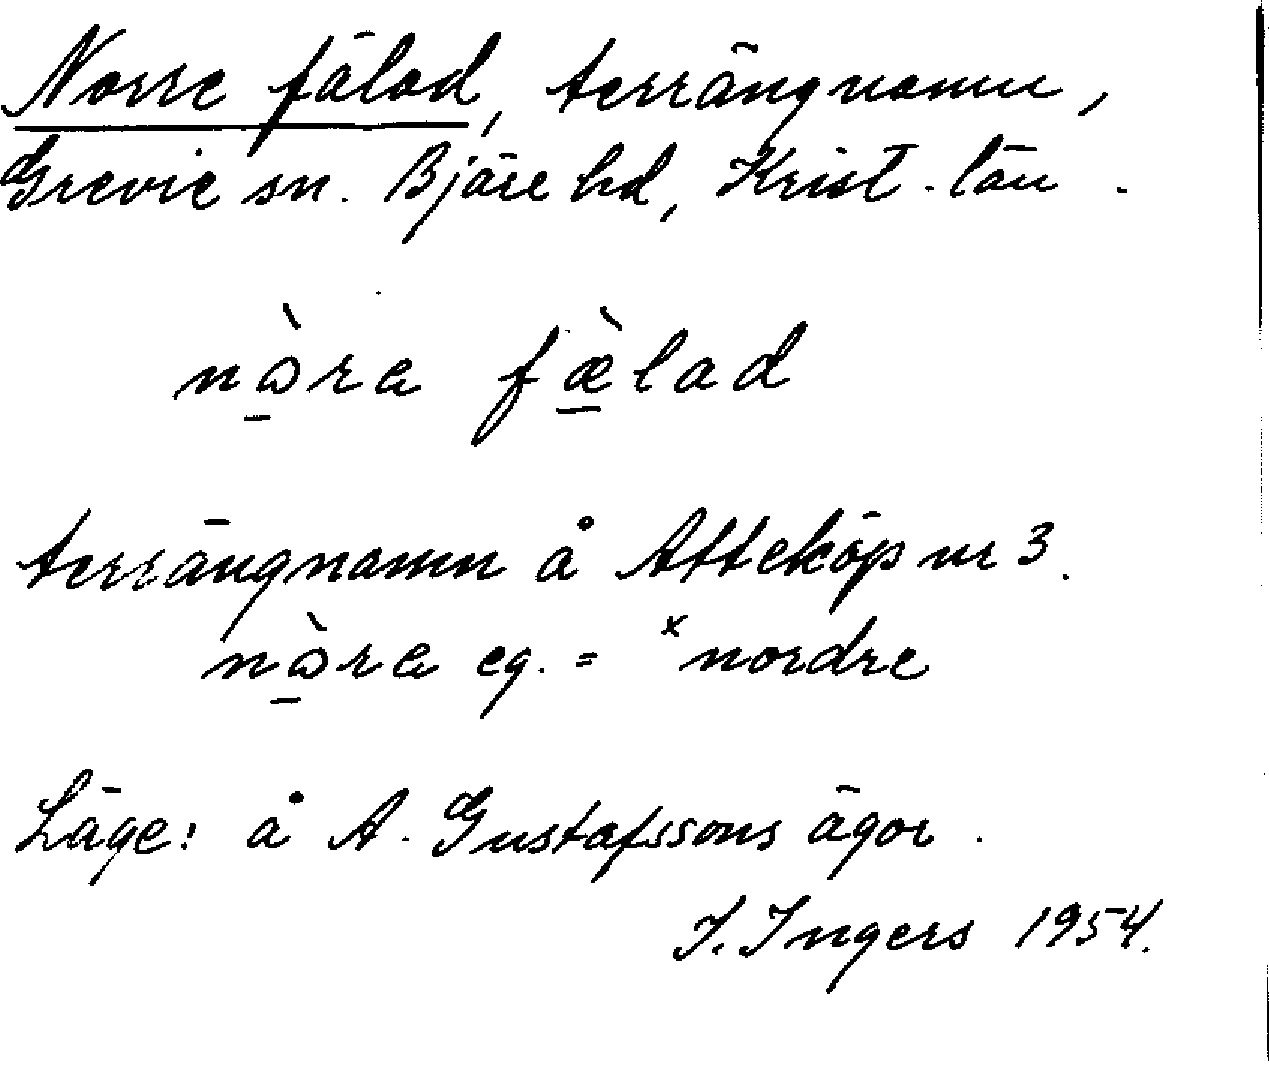 Norre fälad, terrängnamn,
Grevie sn. Bjäre hd, Krist. län.
nɷ̠̀ra fæ̠̀lad
terrängnamn å Atteköp nr 3.
nɷ̠̀ra eg. = ˣnordre
Läge: å A. Gustafssons ägor.
I. Ingers 1954.